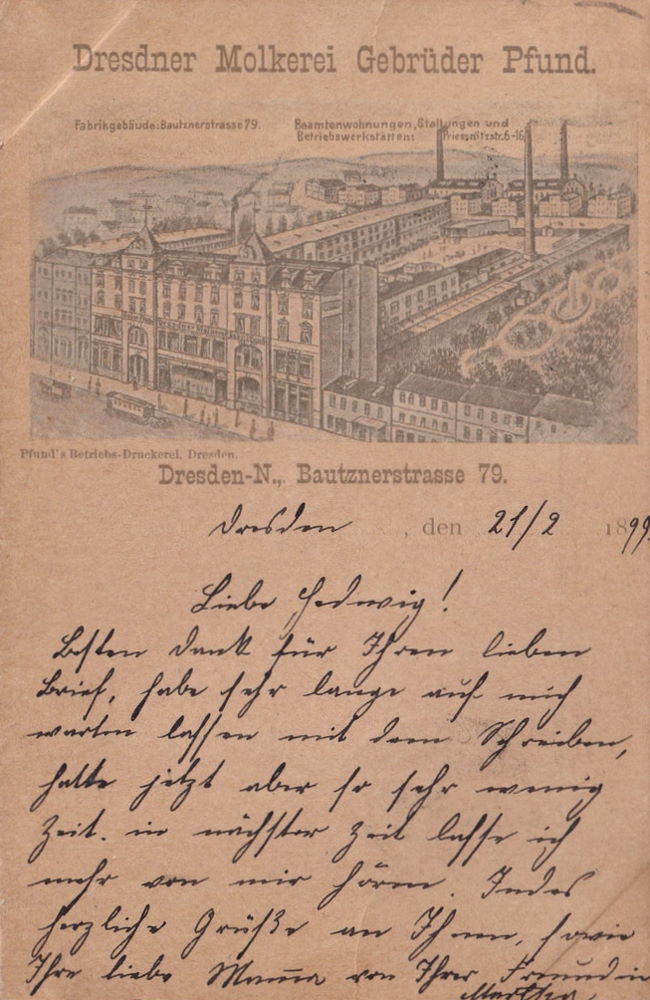 Dresdner Molkerei Gebrüder Pfund.
Fabrikgebäude: Bautznerstrasse 79.
Beamtenwohnungen, Stallungen und
Betriebswerkstätten: Priessnitzstr. 6-16
Pfund's Betriebs-Druckerei, Dresden.
Dresden-N., Bautznerstrasse 79.
Dresden, den 21/2 1899.
Liebe Hedwig!
Besten Dank für Ihren lieben
Brief, habe sehr lange auf mich
warten lassen mit dem Schreiben,
hatte jetzt aber so sehr wenig
Zeit. in nächster Zeit lasse ich
mehr von mir hören. Indes
herzliche Grüße an Ihnen, sowie
Ihre liebe Mama von Ihrer Freundin
Martha